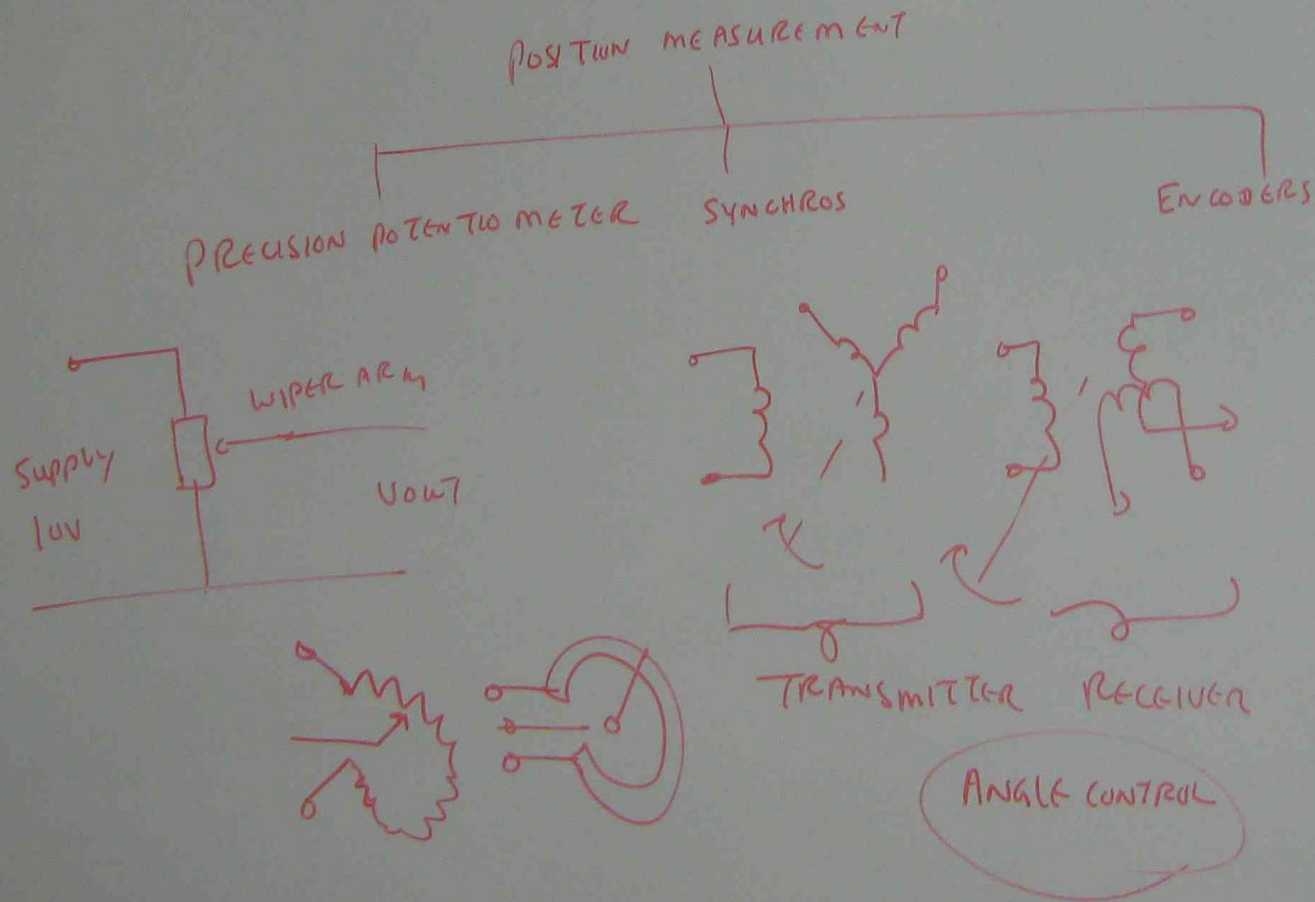 POSITION MEASUREMENT
PRECISION POTENTIOMETER
SYNCHROS
ENCODERS
WIPER ARM
Supply
10V
VOUT
TRANSMITTER
RECEIVER
ANGLE CONTROL